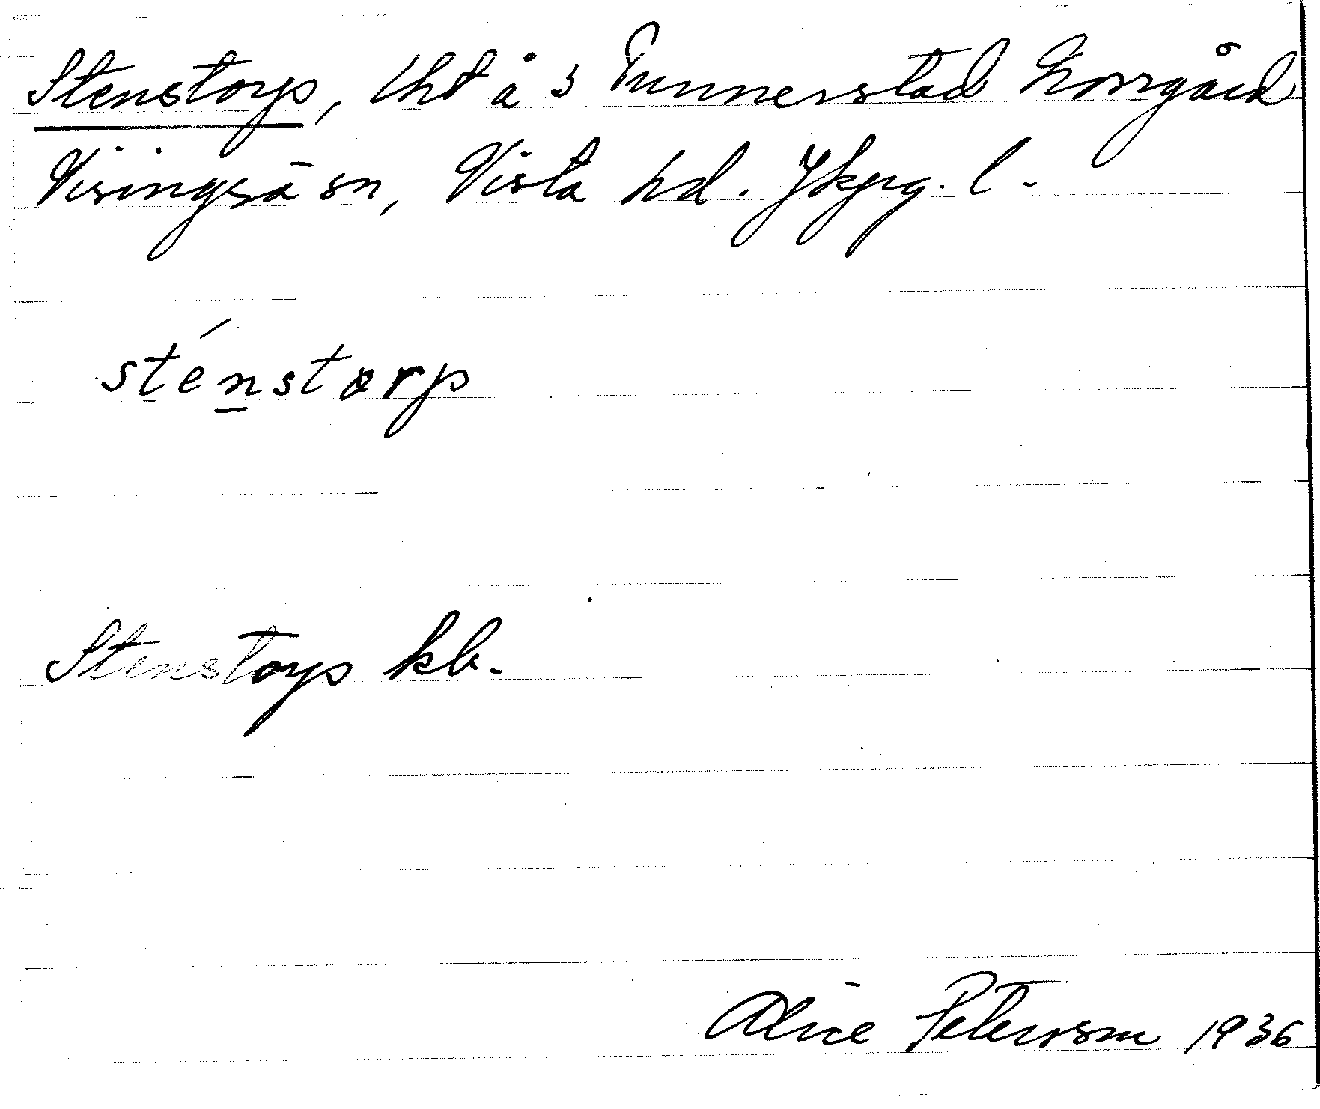 Stenstorp, lht å 3 Tunnerstad Norrgård
Visingsö sn, Vista hd. Jkpg. l.
sténstorp
Stenstorp kb.
Alice Petersson 1936